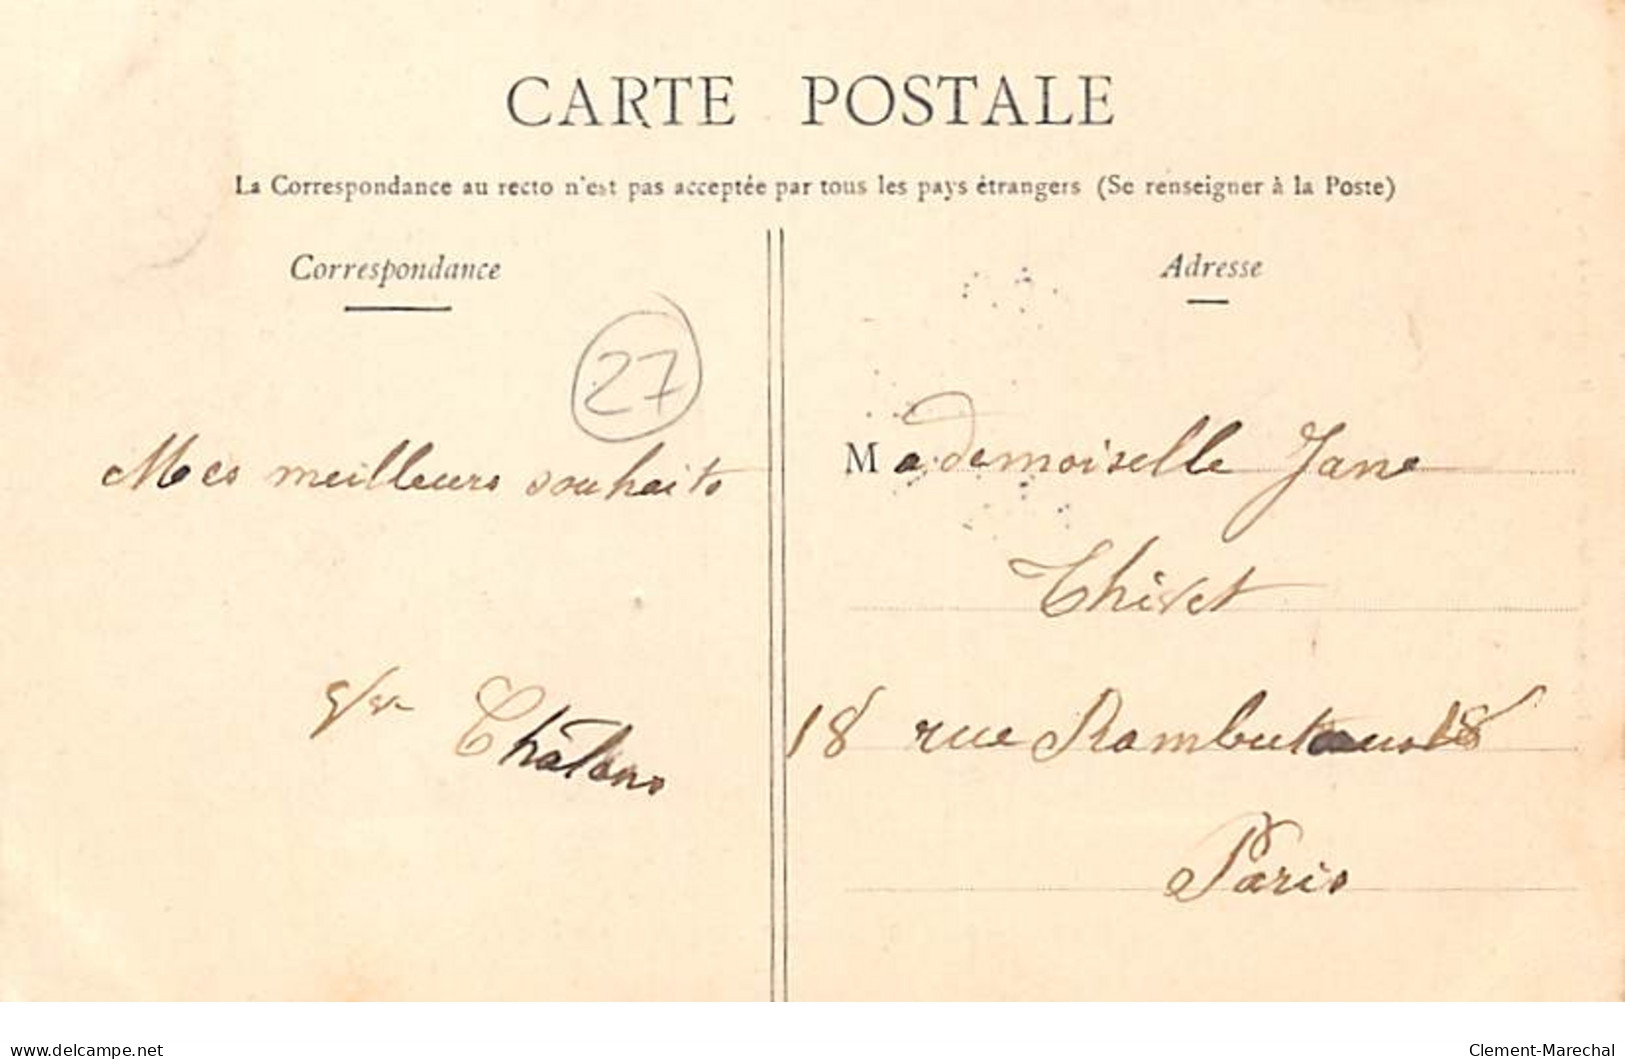 CARTE POSTALE
La Correspondance au recto n'est pas acceptée par tous les pays étrangers (Se renseigner à la Poste)
Correspondance
27
Mes meilleurs souhaits
Châlons
Adresse
Mademoiselle Jane
Thivet
18 rue Rambuteau 18
Paris
delcampe.net
Clement-Marechal